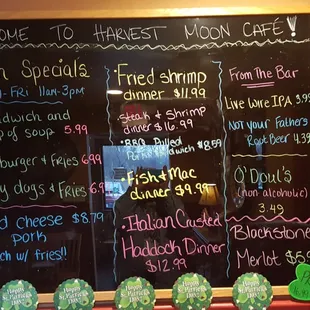 OME TO HARVEST MOON CAFÉ!
h Specials
-Fri 11am-3pm
andwich and
p of soup 5.99
burger & Fries 6.99
y dogs & fries 6.99
d cheese $8.79
pork
ch w/ fries!!
Fried shrimp
dinner $11.99
Steak & Shrimp
dinner $16.99
BBQ Pulled
Pork Sandwich $8.59
Fish & Mac
dinner $9.99
Italian Crusted
Haddock Dinner
$12.99
From The Bar
Live Wire IPA 3.9
Not your Fathers
Root Beer 4.39
O'Doul's
(non-alcoholic)
3.49
Blackstone
Merlot $5
Happy
St. Patrick's
Day!
Happy
St. Patrick's
Day!
Happy
St. Patrick's
Day!
Happy
St. Patrick's
Day!